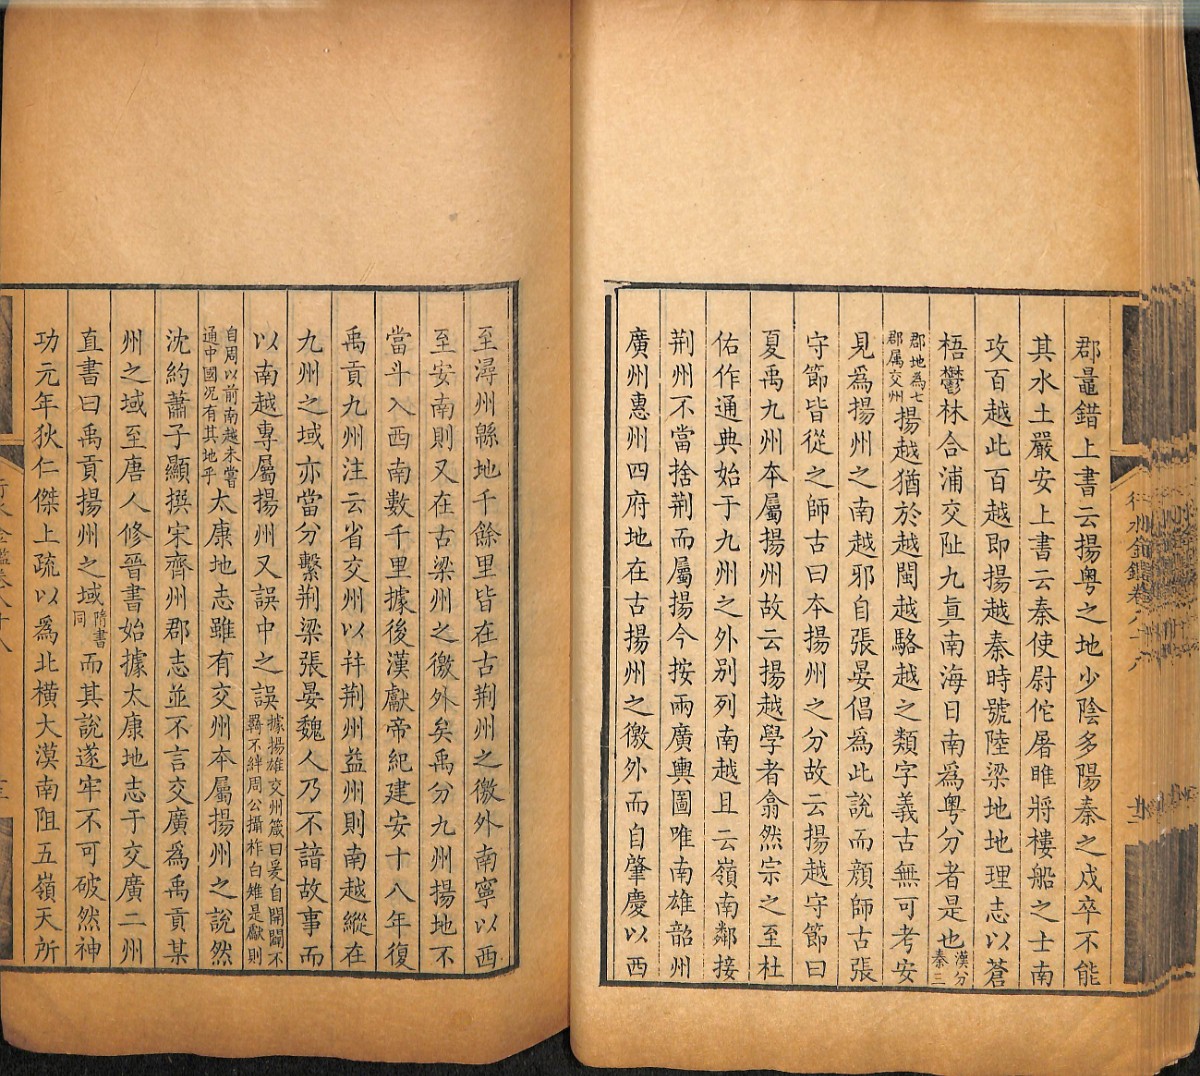 郡鼂錯上書云揚粤之地少陰多陽秦之戍卒不能
其水土嚴安上書云秦使尉佗屠睢將樓船之士南
攻百越此百越即揚越秦時號陸梁地地理志以蒼
梧鬱林合浦交阯九眞南海日南爲粤分者是也漢分秦三
郡地為七郡属交州揚越猶於越閩越駱越之類字義古無可考安
見爲揚州之南越邪自張晏倡爲此說而顔師古張
守節皆從之師古曰夲揚州之分故云揚越守節曰
夏禹九州本屬揚州故云揚越學者翕然宗之至杜
佑作通典始于九州之外别列南越且云嶺南鄰接
荆州不當捨荆而屬揚今按兩廣輿圖唯南雄韶州
廣州惠州四府地在古揚州之徼外而自肇慶以西
至潯州緜地千餘里皆在古荆州之徼外南寧以西
至安南則又在古梁州之徼外矣禹分九州揚地不
當斗入西南數千里據後漢獻帝紀建安十八年復
禹貢九州注云省交州以幷荆州益州則南越縱在
九州之域亦當分繫荆梁張晏魏人乃不諳故事而
以南越專屬揚州又誤中之誤據揚雄交州箴曰爰自開闢不羈不絆周公攝祚白雉是獻則
自周以前南越未嘗通中國況有其地乎太康地志雖有交州本屬揚州之說然
沈約蕭子顯撰宋齊州郡志並不言交廣爲禹貢某
州之域至唐人修晉書始據太康地志于交廣二州
直書曰禹貢揚州之域隋書同而其說遂牢不可破然神
功元年狄仁傑上疏以爲北橫大漠南阻五嶺天所